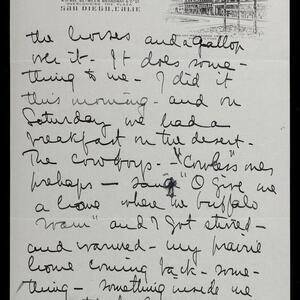 SAN DIEGO, CALIF.
the horses and a gallop
over it. It does some-
thing to me - I did it
this morning - and on
Saturday we had a
breakfast on the desert.
The cowboys - "Cowless" ones
perhaps - sang "O give me
a home where the buffalo
roam" and I got stirred -
and warmed - my prairie
home coming back - some-
thing - something inside me